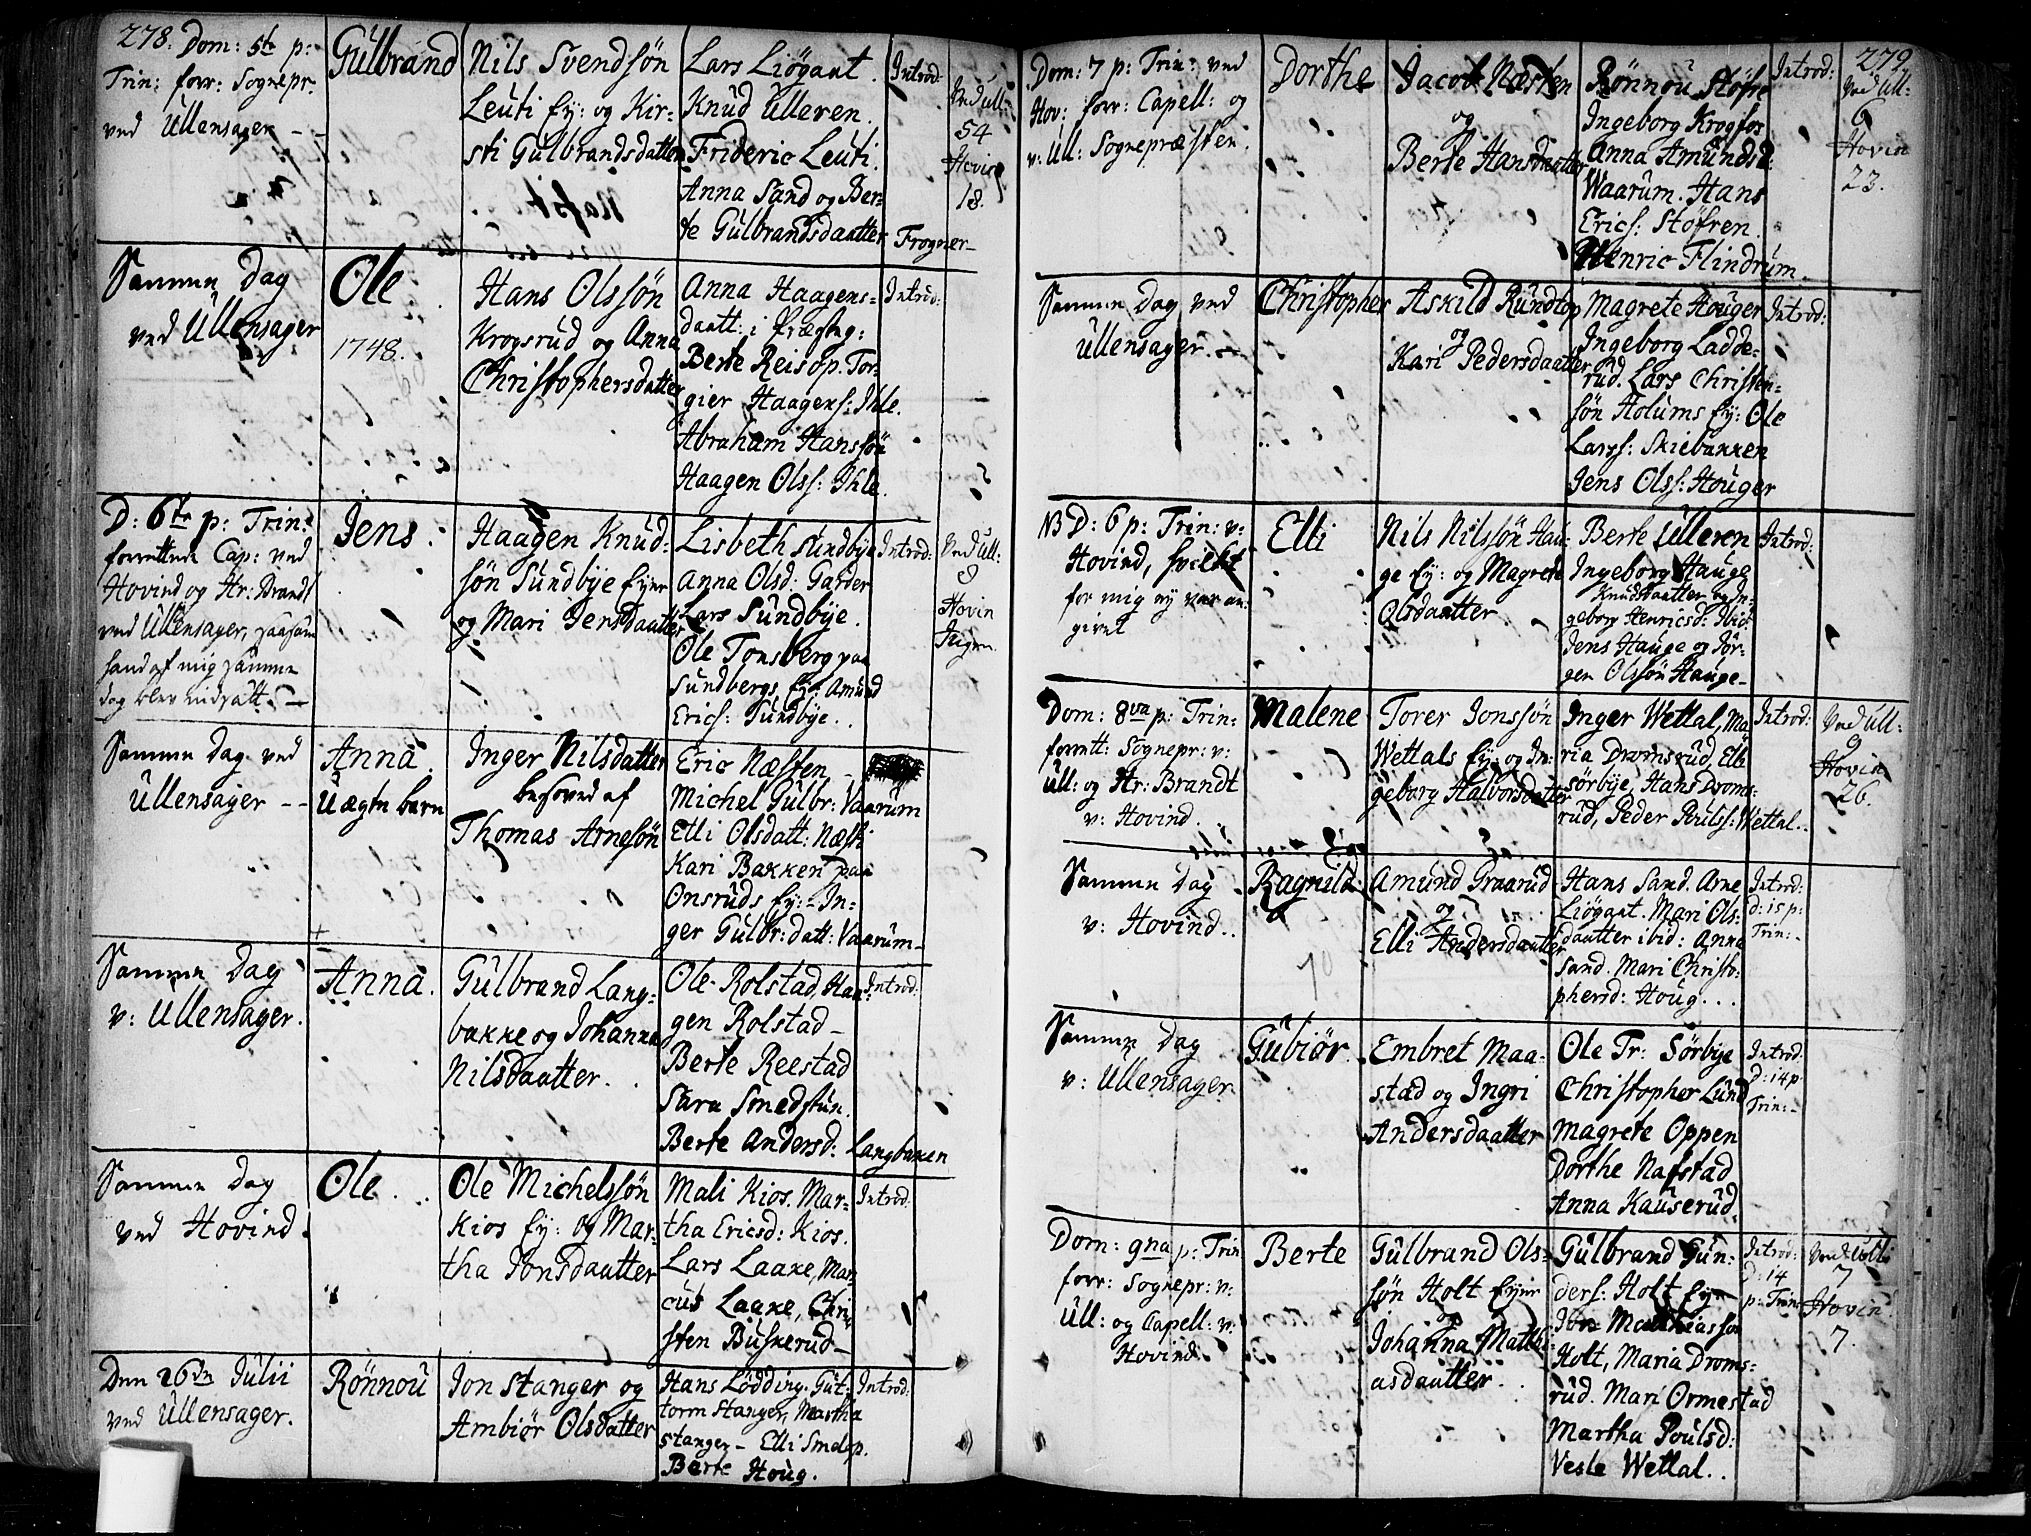 278.
Dom: 5te p:
Trin: forr: Sognepr.
ved Ullensager - -
Gulbrand
Nils Svendsön
Leuti Ey: og Kir-
sti Gulbrandsdatter
Lars Liögaat.
Knud Ulleren.
Frideric Leuti.
Anna Sand og Ber-
te Gulbrandsdaatter
Introd:
Frogner-
Ved Ull:
54
Hovin
18.
Sammen Dag
ved Ullensager
Ole
1748.
Hans Olssön
Krogsrud og Anna
Christophersdatter
Anna Haagens-
daatt: i Præsteg:
Berte Reisop. Tor-
gier Haagens: Ihle.
Abraham Hanssön
Haagen Olss: Ihle.
Introd:
D: 6te p: Trin:
forrettede Cap: ved
Hovind og Hr: Brandt
ved Ullensager, saasom
hand af mig samme
dag blev indsatt. -
Jens
Haagen Knud-
sön Sundbye Eyer
og Mari Jensdaatter
Lisbeth Sundbye
Anna Olsd: Garder
Lars Sundbye.
Ole Tonsberg paa
Sundbergs Ey: Amund
Erics: Sundbye.
Introd:
Ved Ull:
8
Hovin
Ingen
Sammen Dag ved
Ullensager - -
Anna.
Uægte barn
Inger Nilsdatter
besoved af
Thomas Arnesön
Eric Næsten -
Michel Gulbr: Vaarum
Elli Olsdatt: Næsti
Kari Bakken paa
Onsruds Ey: - In-
ger Gulbr: datt: Vaarum-
Sammen Dag
v: Ullensager.
Anna.
Gulbrand Lang-
bakke og Johanna
Nilsdaatter.
Ole Rolstad, Haa-
gen Rolstad -
Berte Reestad
Sara Smedstun.
Berte Andersd:
Introd:
Langbaken
Sammen Dag
ved Hovind.
Ole.
Ole Michelssön
Kios Ey: og Mar-
tha Jonsdaatter
Mali Kios. Mar-
tha Ericsd: Kios.
Lars Laake, Mar-
cus Laake, Chri-
sten Buskerud -
Introd:
Den 26de Julii
ved Ullensager.
Rönnou
Jon Stanger og
Ambiör Olsdatter
Hans Lödding. Gut-
torm Stanger, Martha
Stanger - Elli Smdop.
Berte Houg.
Introd:
279.
Dom: 7 p: Trin: ved
Hov: forr: Capell: og
v: Ull: Sognepræsten.
Dorthe
Jacob Næsten
og
Berte Hansdaatter
Rönnou Stöfre
Ingeborg Krogfos
Anna Amundsd:
Waarum. Hans
Erics: Stöfren.
Henric Flindrum.
Introd:
Ved Ull:
6
Hovin
23.
Sammen Dag ved
Ullensager.
Christopher
Askild Rundtop
og
Kari Pedersdaatter
Magrete Houger
Ingeborg Ladde-
rud. Lars Christen-
sön Holums Ey: Ole
Larss: Skiebakken
Jens Olss: Houger
Introd:
NB D: 6 p: Trin: v:
Hovind, hvilket
for mig ey var an-
givet
Elli
Nils Nilssön Hau-
ge Ey: og Magrete
Olsdaatter.
Berte Ulleren
Ingeborg Hauge
Knudsdaatter og In-
geborg Henricsd: Ibid:
Jens Hauge og Jör-
gen Olssön Hauge-
Introd:
Dom: 8va p: Trin:
forrett: Sognepr: v:
Ull: og Hr: Brandt
v: Hovind.
Malene
Torer Jonssön
Wettals Ey: og In-
geborg Halvorsdaatter
Inger Wettal, Ma-
ria Dromsrud, Elli
Sörbye, Hans Droms-
rud, Peder Poulss: Wettal.
Introd:
Ved Ull:
9
Hovin
26.
Sammen Dag
v: Hovind.
Ragnild.
Amund Graarud
og
Elli Andersdaatter
Hans Sand. Arne
Liögaat. Mari Ols-
daatter ibid: Anna
Sand. Mari Christo-
phersd: Houg.
Introd:
D: 15 p:
Trin:-
Sammen Dag
v: Ullensager
Gubiör.
Embret Maa-
stad og Ingri
Andersdaatter
Ole Tr: Sörbye
Christopher Lund
Magrete Oppen
Dorthe Nafstad
Anna Kauserud.
Introd:
D: 14 p:
Trin:-
Dom: 9na p: Trin
forr: Sognepr: v:
Ull: og Capell: v:
Hovind.
Berte
Gulbrand Ols-
sön Holt Eyer
og
Johanna Matthi-
asdaatter.
Gulbrand Gun-
ders: Holt Eye
Jon Matthiassön
Holt, Maria Droms-
rud. Mari Ormestad
Martha Poulsd:
Vesle Wettal.
Introd:
D: 14
p: Trin:
7
Hovin
7.